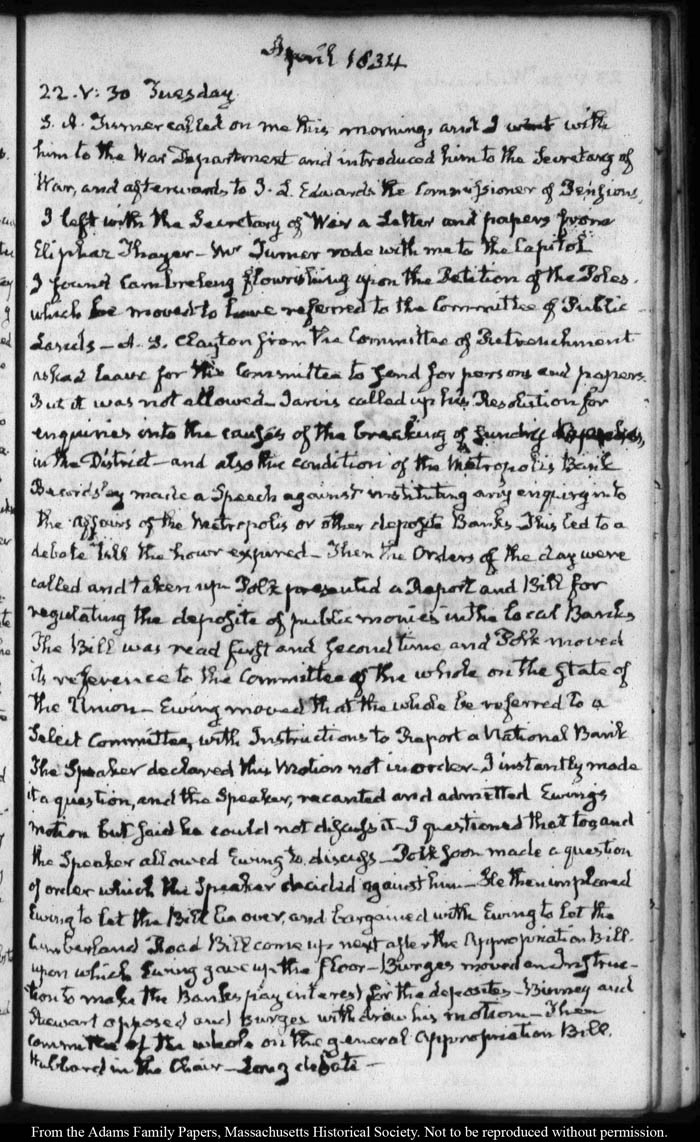 April 1834
22. V: 30 Tuesday.
S. A. Turner called on me this morning, and I went with
him to the War Department and introduced him to the Secretary of
War, and afterwards to J. L. Edwards the Commissioner of Pensions
I left with the Secretary of War a Letter and papers from
Eliphaz Thayer — Mr Turner rode with me to the Capitol
I found Cambreleng flourishing upon the Petition of the Poles.
which he moved to have referred to the Committee of Public
Lands — A. S. Clayton from the Committee of Retrenchment
asked leave for the Committee to send for persons and papers.
But it was not allowed — Jarvis called up his Resolution for
enquiries into the causes of the breaking of sundry
in the District — and also the condition of the Metropolis Bank
Beardsley made a Speech against instituting any enquiry into
the affairs of the Metropolis or other deposite Banks. This led to a
debate till the hour expired — Then the Orders of the day were
called and taken up — Polk presented a Report and Bill for
regulating the deposite of public monies in the local Banks
The Bill was read first and second time and Polk moved
its reference to the Committee of the whole on the state of
the Union — Ewing moved that the whole be referred to a
Select Committee, with Instructions to Report a National Bank
The Speaker declared this Motion not in order — I instantly made
it a question, and the Speaker, recanted and admitted Ewing's
motion but said he could not discuss it — I questioned that too, and
the Speaker allowed Ewing to discuss — Polk soon made a question
of order which the Speaker decided against him — He then implored
Ewing to let the Bill lie over, and bargained with Ewing to let the
Cumberland Road Bill come up next after the Appropriation Bill.
upon which Ewing gave up the floor — Burges moved an Instruc-
tion to make the Banks pay interest for the deposites — Binney and
Stewart opposed and Burges withdrew his motion — Then
Committee of the whole on the general appropriation Bill.
Hubbard in the Chair — Long debate —
From the Adams Family Papers, Massachusetts Historical Society. Not to be reproduced without permission.